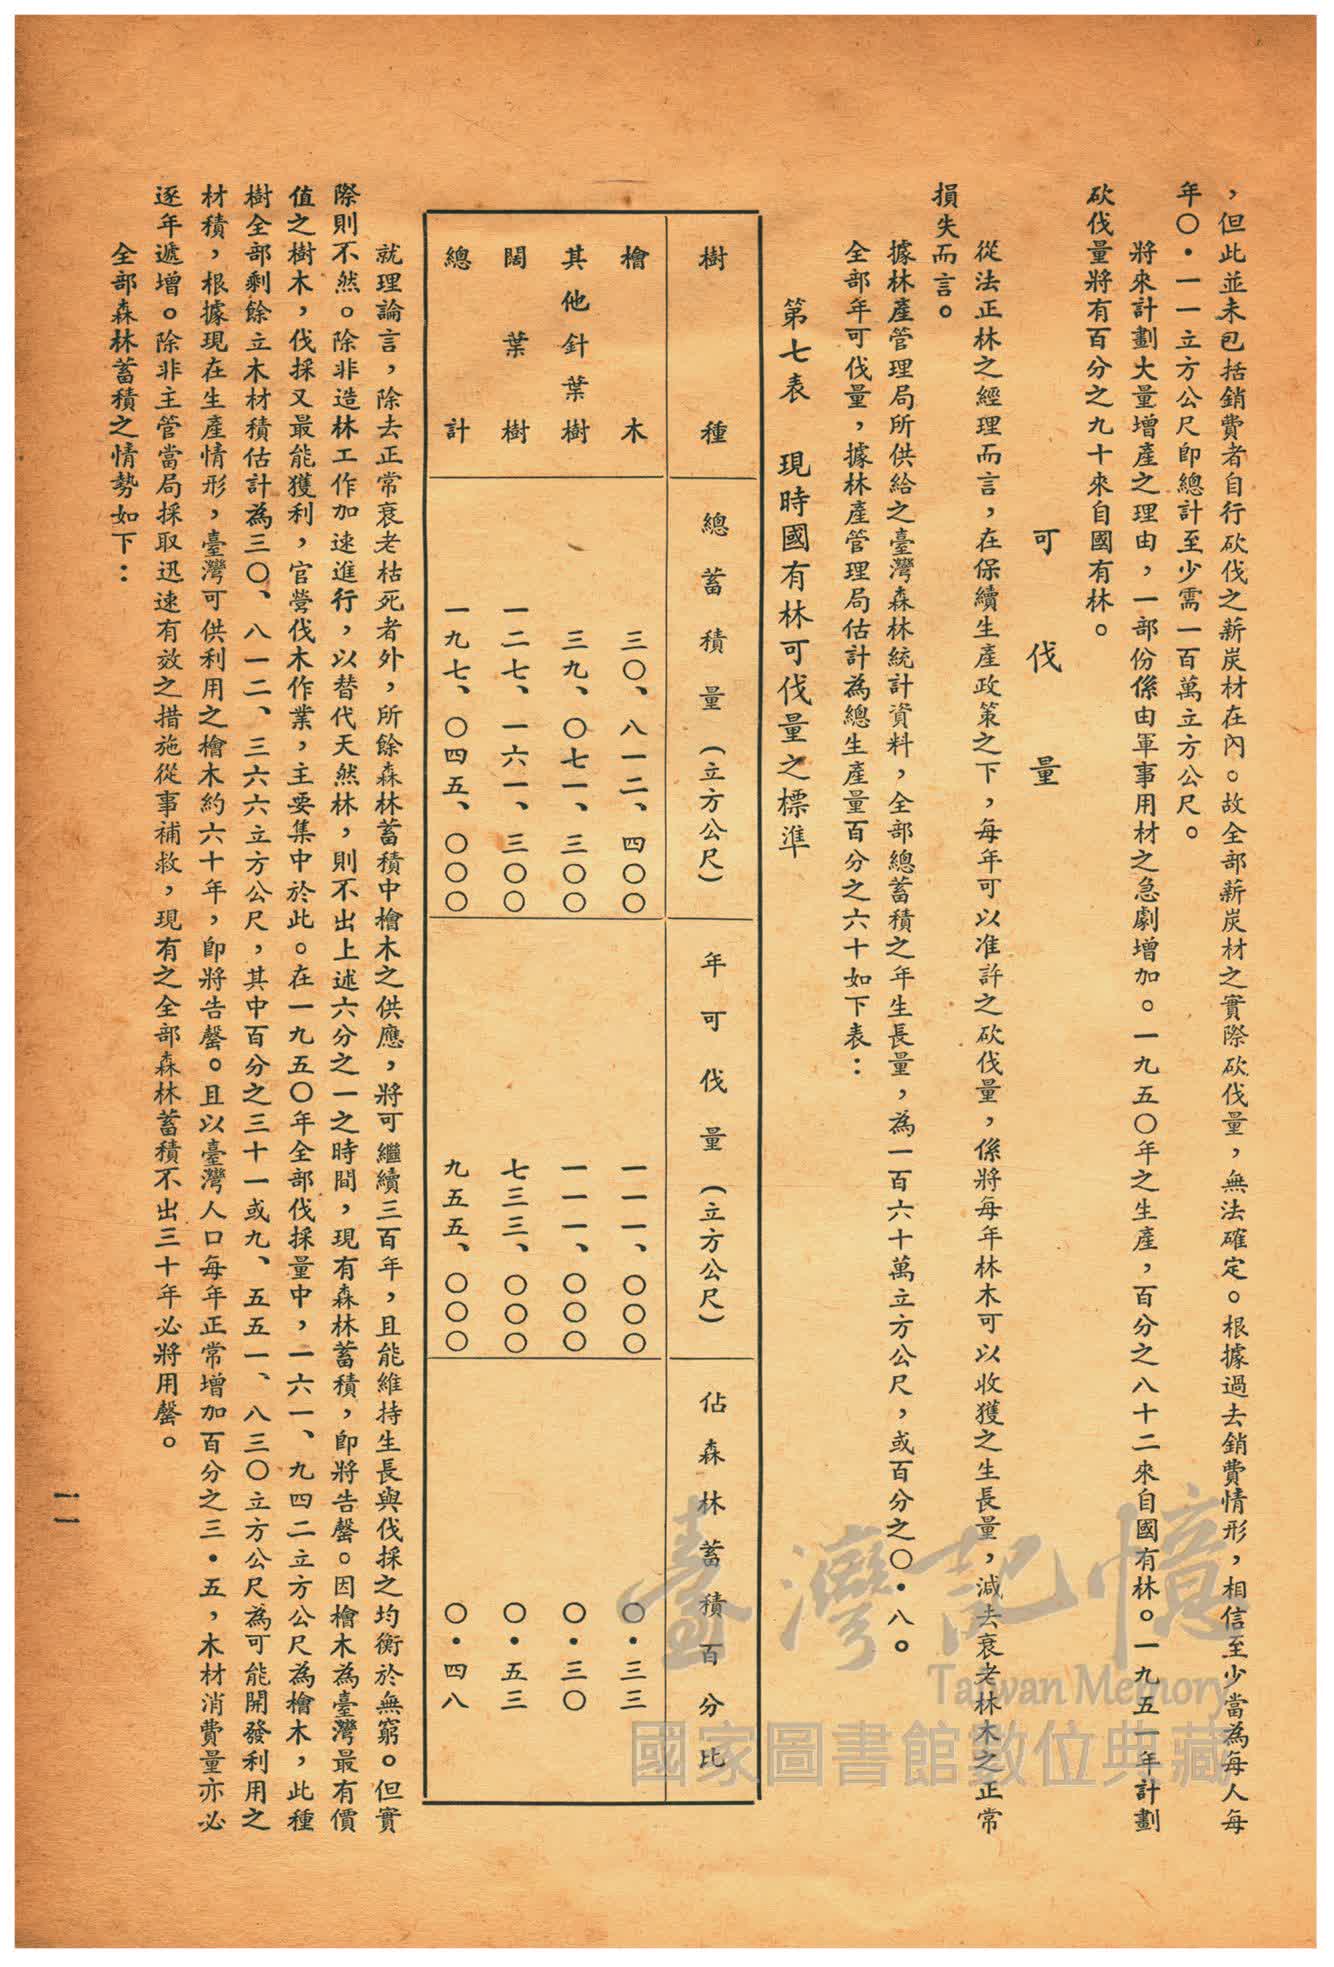 ，但此並未包括銷費者自行砍伐之薪炭材在內。故全部薪炭材之實際砍伐量，無法確定。根據過去銷費情形，相信至少當為每人每
年〇・一一立方公尺即總計至少需一百萬立方公尺。
將來計劃大量增產之理由，一部份係由軍事用材之急劇增加。一九五〇年之生產，百分之八十二來自國有林。一九五一年計劃
砍伐量將有百分之九十來自國有林。
可伐量
從法正林之經理而言，在保續生產政策之下，每年可以准許之砍伐量，係將每年林木可以收獲之生長量，減去衰老林木之正常
損失而言。
據林產管理局所供給之臺灣森林統計資料，全部總蓄積之年生長量，為一百六十萬立方公尺，或百分之〇・八。
全部年可伐量，據林產管理局估計為總生產量百分之六十如下表：
第七表　現時國有林可伐量之標準
樹種　總蓄積量（立方公尺）　年可伐量（立方公尺）　佔森林蓄積百分比
檜木　三〇、八一二、四〇〇　一一一、〇〇〇　〇・三三
其他針葉樹　三九、〇七一、三〇〇　一一一、〇〇〇　〇・三〇
闊葉樹　一二七、一六一、三〇〇　七三三、〇〇〇　〇・五三
總計　一九七、〇四五、〇〇〇　九五五、〇〇〇　〇・四八
就理論言，除去正常衰老枯死者外，所餘森林蓄積中檜木之供應，將可繼續三百年，且能維持生長與伐採之均衡於無窮。但實
際則不然。除非造林工作加速進行，以替代天然林，則不出上述六分之一之時間，現有森林蓄積，即將告罄。因檜木為臺灣最有價
值之樹木，伐採又最能獲利，官營伐木作業，主要集中於此。在一九五〇年全部伐採量中，一六一、九四二立方公尺為檜木，此種
樹全部剩餘立木材積估計為三〇、八一二、三六六立方公尺，其中百分之三十一或九、五五一、八三〇立方公尺為可能開發利用之
材積，根據現在生產情形，臺灣可供利用之檜木約六十年，即將告罄。且以臺灣人口每年正常增加百分之三・五，木材消費量亦必
逐年遞增。除非主管當局採取迅速有效之措施從事補救，現有之全部森林蓄積不出三十年必將用罄。
全部森林蓄積之情勢如下：
一一
臺灣記憶
Taiwan Memory
國家圖書館數位典藏